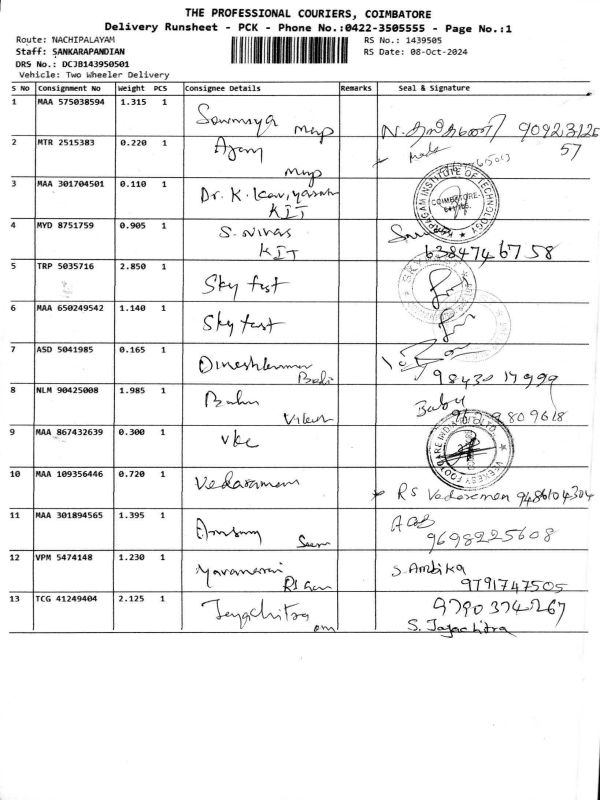 THE PROFESSIONAL COURIERS, COIMBATORE
Delivery Runsheet - PCK - Phone No.:0422-3505555 - Page No.:1
Route: NACHIPALAYAM
RS No.: 1439505
Staff: SANKARAPANDIAN
RS Date: 08-Oct-2024
DRS No.: DCJB143950501
Vehicle: Two Wheeler Delivery
S No Consignment No Weight PCS Consignee Details Remarks Seal & Signature
1 MAA 575038594 1.315 1 Sowmiya
90923125
57
2 MTR 2515383 0.220 1
3 MAA 301704501 0.110 1 Dr. K.
KIT
KARPAGAM INSTITUTE OF TECHNOLOGY
COIMBATORE-
4 MYD 8751759 0.905 1 S. Nivas
KIT
6384746758
5 TRP 5035716 2.850 1 Sky fast
6 MAA 650249542 1.140 1 Sky fast
7 ASD 5041985 0.165 1 Dineshkumar
9843017999
8 NLM 90425008 1.985 1 Babu
Baby
9 MAA 867432639 0.300 1 vkc
10 MAA 109356446 0.720 1 Vedaraman
RS Vedaraman 9486104304
11 MAA 301894565 1.395 1
9698225608
12 VPM 5474148 1.230 1
S. Ambika
9791747505
13 TCG 41249404 2.125 1 Jayachitra
9790374267
S. Jayachitra